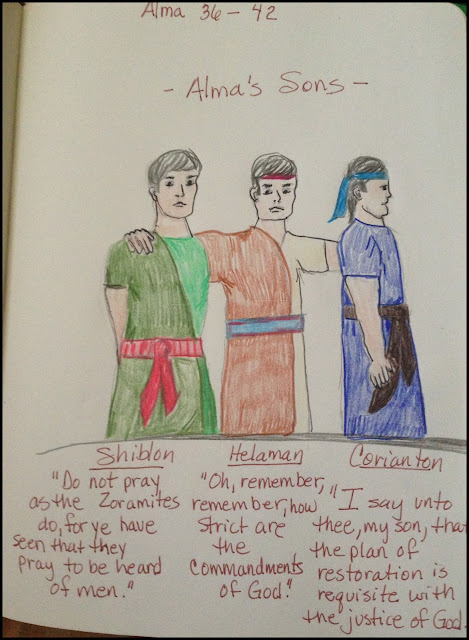 Alma 36-42
- Alma's Sons -
Shiblon
"Do not pray
as the Zoramites
do, for ye have
seen that they
pray to be heard
of men."
Helaman
"Oh, remember,
remember, how
strict are
the
commandments
of God."
Corianton
"I say unto
thee, my son, that
the plan of
restoration is
requisite with
the justice of God.